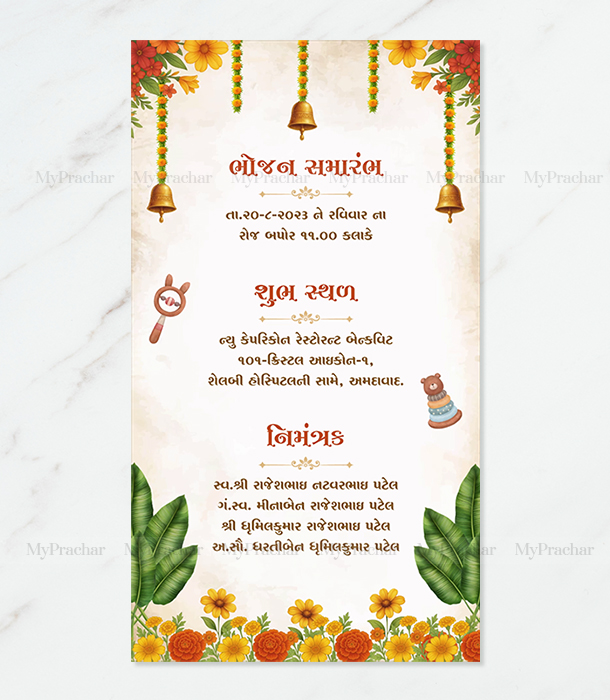 ભોજન સમારંભ
MyPrachar MyPrachar MyPrachar MyPrachar MyPrachar MyPrachar
તા.૨૦-૮-૨૦૨૩ ને રવિવાર ના
રોજ બપોર ૧૧.૦૦ કલાકે
શુભ સ્થળ
ન્યુ કેપરિકોન રેસ્ટોરન્ટ બેન્કવિટ
૧૦૧-ક્રિસ્ટલ આઇકોન-૧,
શેલબી હોસ્પિટલની સામે, અમદાવાદ.
નિમંત્રક
સ્વ.શ્રી રાજેશભાઇ નટવરભાઇ પટેલ
ગં.સ્વ. મીનાબેન રાજેશભાઇ પટેલ
શ્રી ધૃમિલકુમાર રાજેશભાઇ પટેલ
અ.સૌ. ધરતીબેન ધૃમિલકુમાર પટેલ
MyPrachar MyPrachar MyPrachar MyPrachar MyPrachar MyPrachar